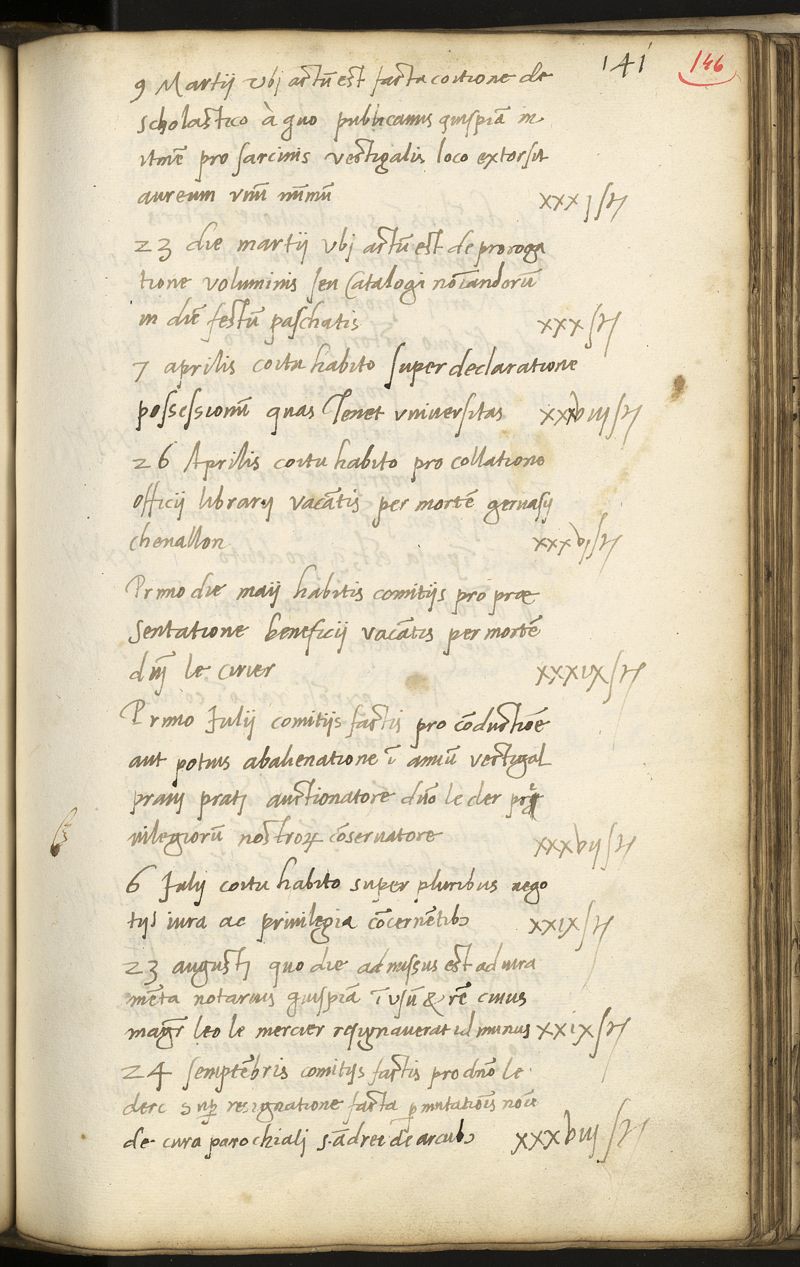 141 146
9 Martij vbj actū est facta coitione de
scholastico à quo publicanus quispiā in
itinē pro sarcinis vectigalis loco extorsit
aureum vnū nūmū xxxj s
23 die martij vbj actū est de proroga
tione voluminis seu Catalogi noīandorū
in diē festū paschatis xxx s
7 aprilis coitu habito super declaratione
possessionū quas Tenet vniuersitas xxxviij s
26 Aprilis coitu habito pro collatione
officij librarij vacātis per mortē geruasij
chenallon xxxvj s
Primo die maij habitis comitijs pro præ
sentatione beneficij vacātis per mortē
dnj le cirier xxxix s
Primo Julij comitijs factis pro cōductiōe
aut potius abalienatione ī annū vectigal
pratij pratj auctionatore dno le der pri
uilegiorū nostrorꝝ cōseruatore xxxvij s
6 Julij coitu habito super pluribus nego
tijs iura ac priuilegia cōcernētibꝫ xxix s
23 augustj quo die admissus est ad iura
mēta notarius quispiā ī vsū & rē cuius
magr̄ leo le mercier resignauerat id munus xxix s
24 semptēbris comitijs factis pro dno le
clerc sup resignatione facta ꝑmutatiōis noīe
de cura parochialj s. ādree de arcubꝫ xxxviij s